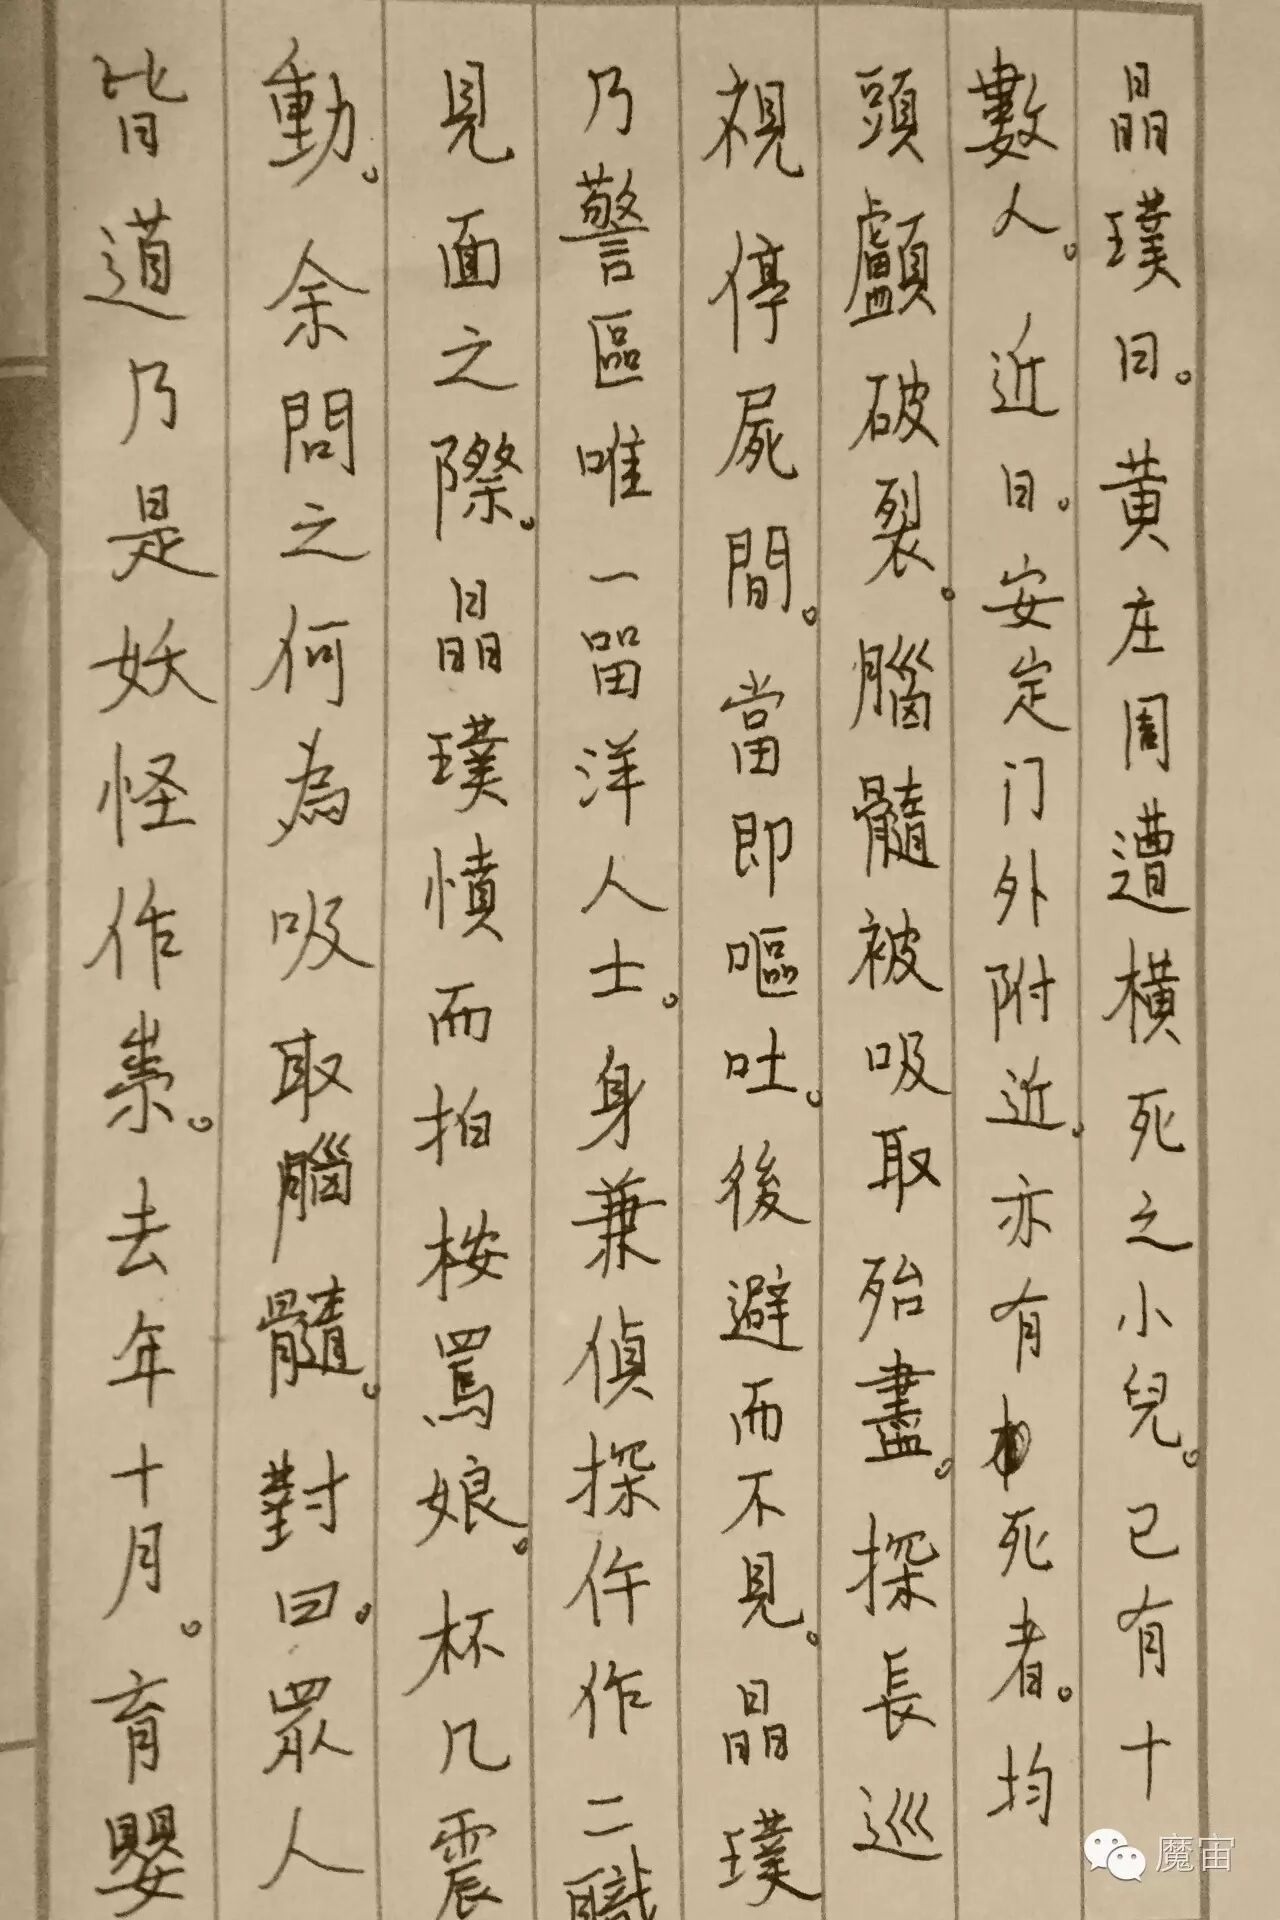 晶璞曰。黄庄周遭橫死之小兒。已有十
數人。近日。安定门外附近。亦有死者。均
頭顱破裂。腦髓被吸取殆盡。探長巡
視停屍間。當即嘔吐。後避而不見。晶璞
乃警區唯一留洋人士。身兼偵探仵作二職
見面之際。晶璞憤而拍桉罵娘。杯几震
動。余問之何為吸取腦髓。對曰。眾人
皆道乃是妖怪作祟。去年十月。育嬰
魔宙